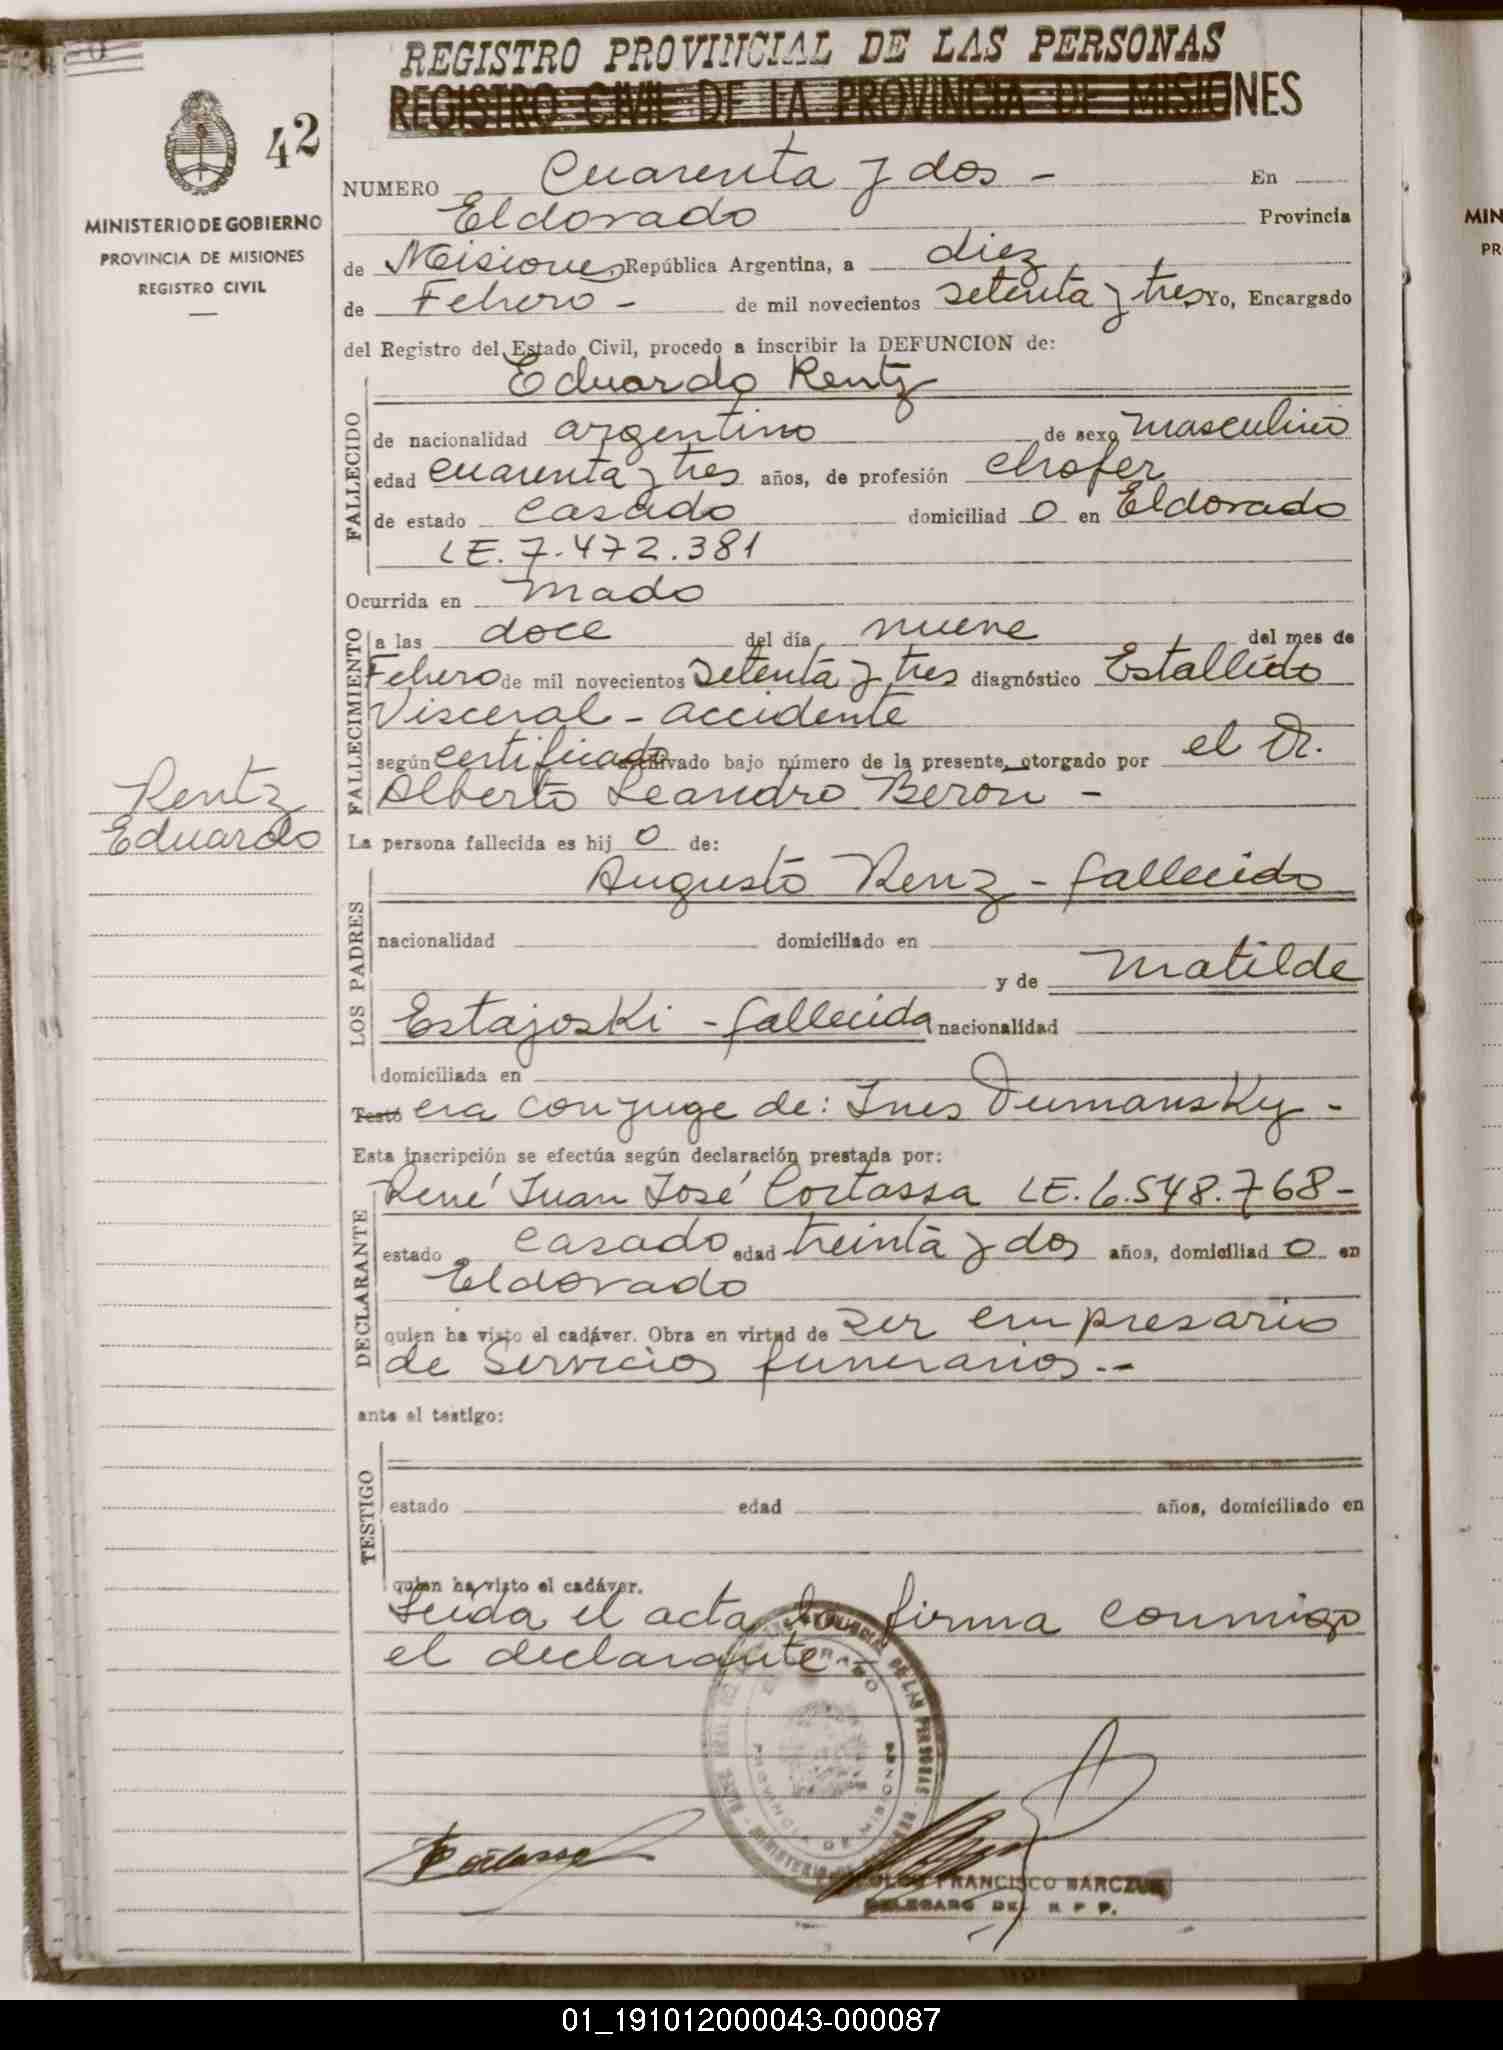 REGISTRO PROVINCIAL DE LAS PERSONAS
REGISTRO CIVIL DE LA PROVINCIA DE MISIONES
42
MINISTERIO DE GOBIERNO
PROVINCIA DE MISIONES
REGISTRO CIVIL
NUMERO Cuarenta y dos - En
Eldorado Provincia
de Misiones República Argentina, a diez
de Febrero - de mil novecientos setenta y tres Yo, Encargado
del Registro del Estado Civil, procedo a inscribir la DEFUNCION de:
Eduardo Rentz
FALLECIDO
de nacionalidad argentino de sexo masculino
edad cuarenta y tres años, de profesión chofer
de estado casado domiciliad o en Eldorado
LE. 7.472.381
Ocurrida en Mado
FALLECIMIENTO
a las doce del día nueve del mes de
Febrero de mil novecientos setenta y tres diagnóstico Estallido
Visceral - accidente
según certificado archivado bajo número de la presente, otorgado por el Dr.
Alberto Leandro Beron -
Rentz
Eduardo
La persona fallecida es hij o de:
LOS PADRES
Augusto Renz - fallecido
nacionalidad domiciliado en
y de Matilde
Estajoski - fallecida nacionalidad
domiciliada en
Testó era conyuge de: Ines Dumansky -
Esta inscripción se efectúa según declaración prestada por:
DECLARANTE
René Juan José Cortassa LE. 6.548.768 -
estado casado edad treinta y dos años, domiciliad o en
Eldorado
quien ha visto el cadáver. Obra en virtud de ser empresario
de servicios funerarios.-
ante el testigo:
TESTIGO
estado edad años, domiciliado en
quien ha visto el cadáver.
Leida el acta la firma conmigo
el declarante -
PROVINCIA DE MISIONES
FRANCISCO
DELEGADO DEL R P P.
MIN
PR
01_191012000043-000087